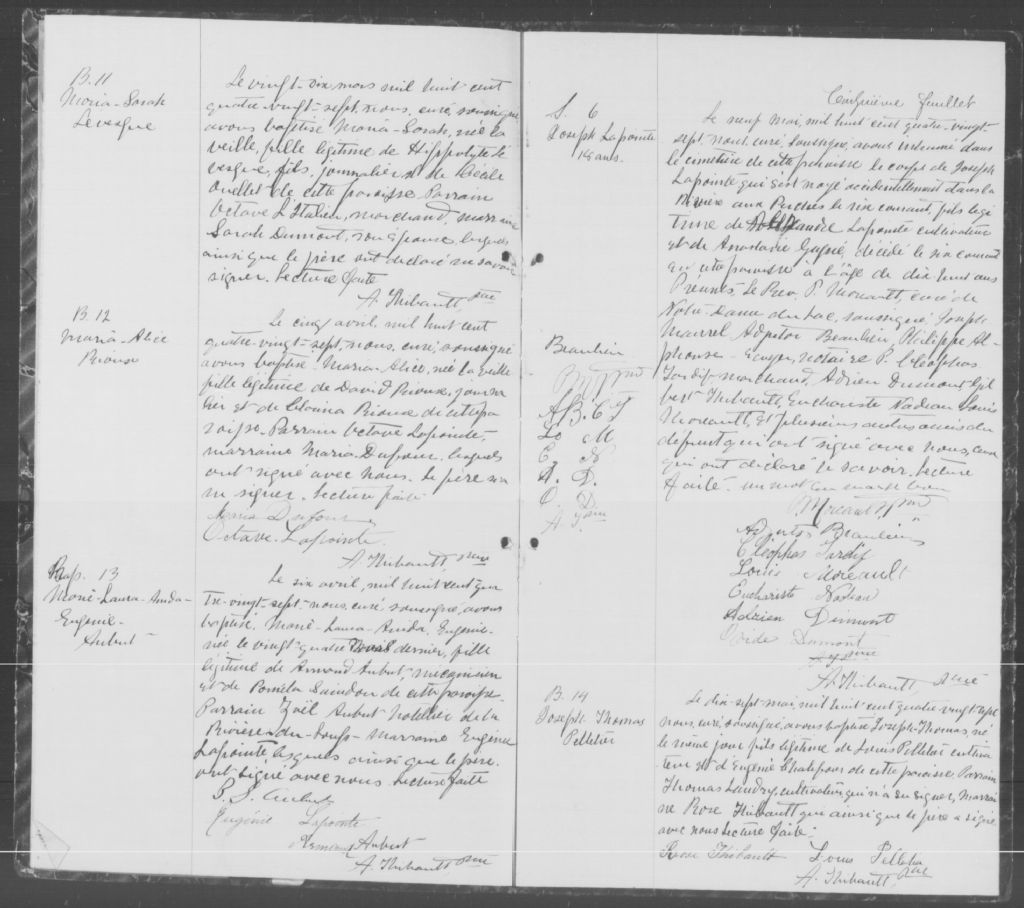 B. 11
Maria-Sarah
Levesque
Le vingt-six mars mil huit cent
quatre-vingt-sept, nous, curé, soussigné
avons baptisé Maria-Sarah, née la
veille, fille légitime de Hippolyte Le
vesque, fils, journalier et de Cécile
Ouellet de cette paroisse. Parrain
Octave L'Italien, marchand, marraine
Sarah Dumont, son épouse, lesquels
ainsi que le père ont déclaré ne savoir
signer. Lecture faite
A. Thibault, ptre
B 12
Maria-Alice
Rioux
Le cinq avril, mil huit cent
quatre-vingt-sept, nous, curé, soussigné
avons baptisé Maria-Alice, née la veille
fille légitime de David Rioux, journa
lier et de Rioux de cette pa
roisse. Parrain Octave Lapointe,
marraine Maria Dufour, lesquels
ont signé avec nous. Le père n'a
su signer. Lecture faite
Maria Dufour
Octave Lapointe
A Thibault, ptre
Bap. 13
Marie-Laura-Anda-
Eugénie-
Aubut
Le six avril, mil huit cent qua
tre-vingt-sept, nous, curé soussigné, avons
baptisé Marie-Laura-Anda, Eugénie-
née le vingt-quatre dernier, fille
légitime de Armand Aubut, mécanicien
et de Paméla Guindon de cette paroisse
Parrain Zoël Aubut hotelier de la
Rivière-du-Loup- Marraine Eugénie
Lapointe, lesquels ainsi que le père
ont signé avec nous Lecture faite
Aubut
Eugénie Lapointe
Armand Aubut
A. Thibault, ptre
Cinquième feuillet
S. 6
Joseph Lapointe
18 ans
Le neuf mai, mil huit cent quatre-vingt-
sept, nous, curé, soussigné, avons inhumé dans
le cimetière de cette paroisse le corps de Joseph
Lapointe qui s'est noyé accidentellement dans la
Rivière aux Perches le six courant, fils légi
time de Lapointe cultivateur
et de Anastasie Gagné, décédé le six courant
en cette paroisse à l'âge de dix huit ans
Présents, Le Rév. P. Moreault, curé de
Notre-Dame du Lac, soussigné, Joseph
Adjutor Beaulieu, Philippe Al-
phonse notaire P. Cléophas
Tardif marchand, Adrien Dumont, Gil
bert Thibault, Euchariste Nadeau Louis
Moreault, et plusieurs autres amis du
défunt qui ont signé avec nous, ceux
qui ont déclaré le savoir. Lecture
faite. un mot en marge bon
Beaulieu
A B. C T
Lo M.
E N.
A. D.
O. D.
A T ptre
Moreault, ptre
Adjutor Beaulieu
Cléophas Tardif
Louis Moreault
Euchariste Nadeau
Adrien Dumont
Ovide Dumont
A. Thibault, ptre
B. 14
Joseph Thomas
Pelletier
Le dix-sept mai, mil huit cent quatre vingt-sept
nous, curé, soussigné, avons baptisé Joseph-Thomas, né
le même jour fils légitime de Louis Pelletier cultiva
teur et d'Eugénie de cette paroisse. Parrain
Thomas Landry, cultivateur, qui n'a su signer, Marrai
ne Rose Thibault qui ainsi que le père a signé
avec nous Lecture faite.
Rose Thibault Louis Pelletier
A. Thibault, ptre